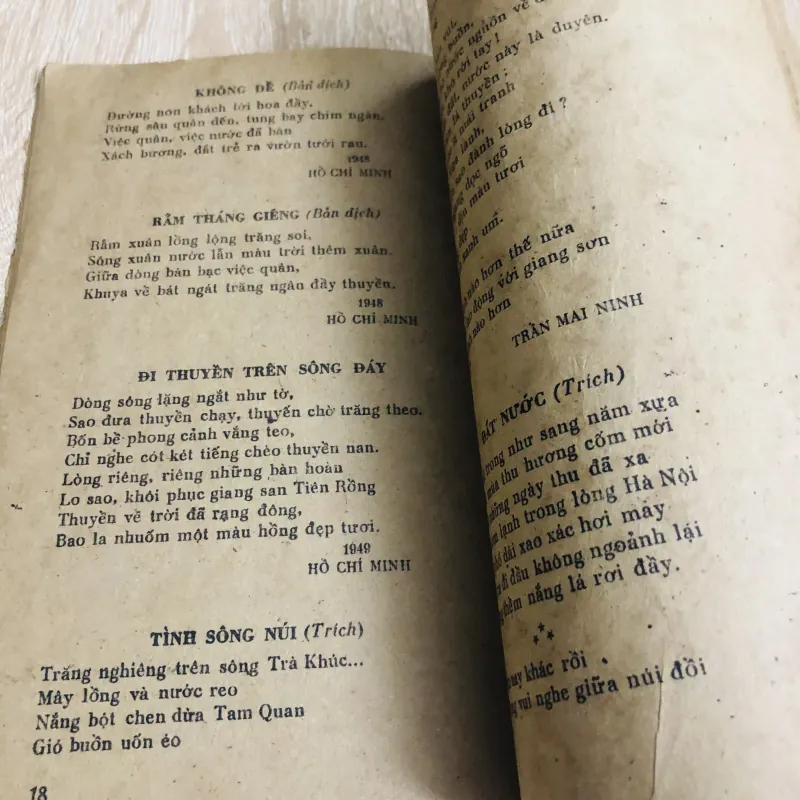 KHÔNG ĐỀ (Bản dịch)
Đường non khách tới hoa đầy,
Rừng sâu quân đến, tung bay chim ngàn,
Việc quân, việc nước đã bàn
Xách bương, dắt trẻ ra vườn tưới rau.
1948
HỒ CHÍ MINH
RẰM THÁNG GIÊNG (Bản dịch)
Rằm xuân lồng lộng trăng soi,
Sông xuân nước lẫn màu trời thêm xuân.
Giữa dòng bàn bạc việc quân,
Khuya về bát ngát trăng ngân đầy thuyền.
1948
HỒ CHÍ MINH
ĐI THUYỀN TRÊN SÔNG ĐÁY
Dòng sông lặng ngắt như tờ,
Sao đưa thuyền chạy, thuyền chờ trăng theo.
Bốn bề phong cảnh vắng teo,
Chỉ nghe cót két tiếng chèo thuyền nan.
Lòng riêng, riêng những bàn hoàn
Lo sao, khôi phục giang san Tiên Rồng
Thuyền về trời đã rạng đông,
Bao la nhuốm một màu hồng đẹp tươi.
1949
HỒ CHÍ MINH
TÌNH SÔNG NÚI (Trích)
Trăng nghiêng trên sông Trà Khúc...
Mây lồng và nước reo
Nắng bột chen dừa Tam Quan
Gió buồn uốn éo
18
nghồn về
rời tay !
nước này là duyên.
là thuyền ;
mái tranh
lành,
sao đành lòng đi ?
dọc ngõ
màu tươi
đẹp
sanh um.
nào hơn thế nữa
động với giang sơn
nào hơn
TRẦN MAI NINH
ĐẤT NƯỚC (Trích)
trong như sáng năm xưa
mùa thu hương cốm mới
những ngày thu đã xa
lạnh trong lòng Hà Nội
dài xao xác hơi may
đi đầu không ngoảnh lại
thềm nắng lá rơi đầy.
nay khác rồi
vui nghe giữa núi đồi